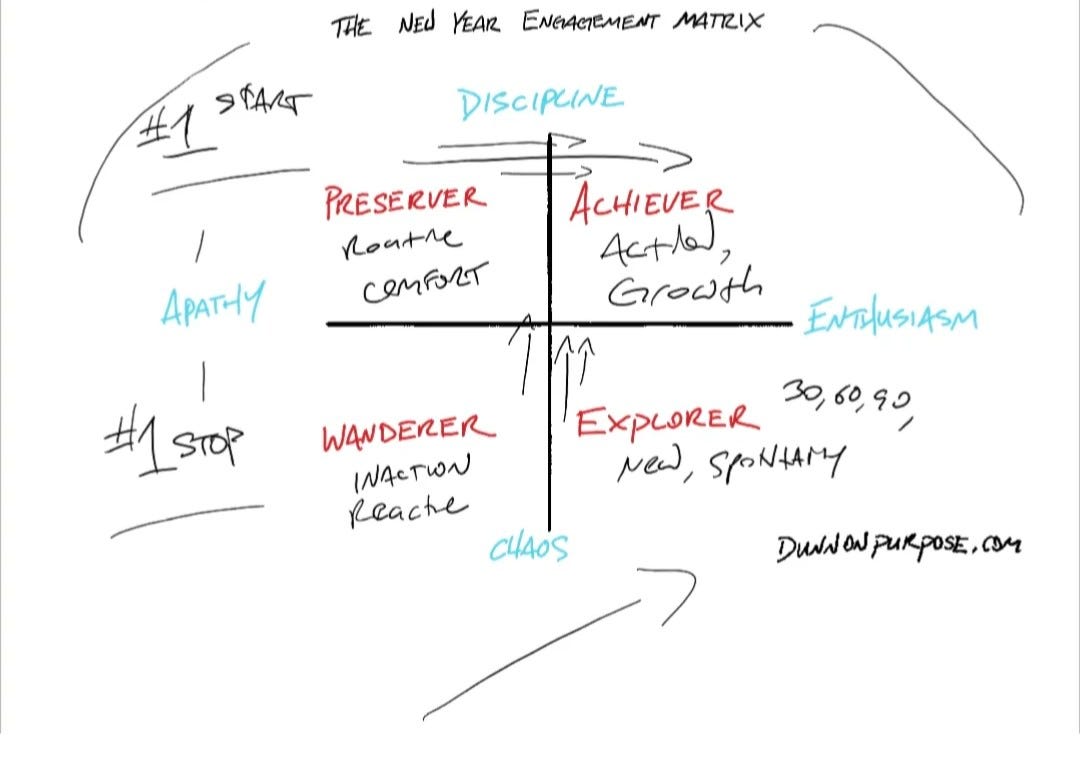 THE NEW YEAR ENGAGEMENT MATRIX
#1 START
DISCIPLINE
PRESERVER
Routine
COMFORT
ACHIEVER
Action,
Growth
APATHY
ENTHUSIASM
#1 STOP
WANDERER
INACTION
Reactive
EXPLORER
30, 60, 90,
New,
CHAOS
DUNNONPURPOSE.COM